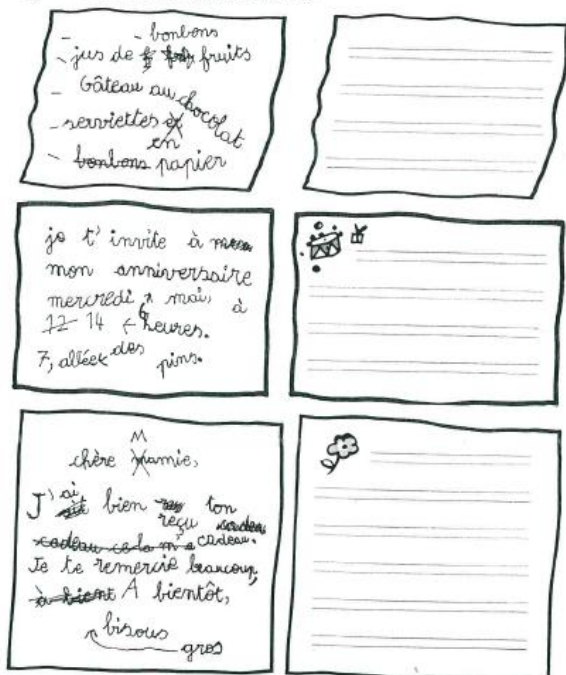 - bonbons
- jus de fruits
- Gâteau au chocolat
- serviettes et
en
- bonbons papier
je t'invite à
mon anniversaire
mercredi 6 mai, à
12 14 heures.
7, allée des pins.
M
chère mamie,
J'ai bien reçu ton
cadeau ce la m'a cadeau.
Je te remercie beaucoup,
à bient A bientôt,
bisous
gros